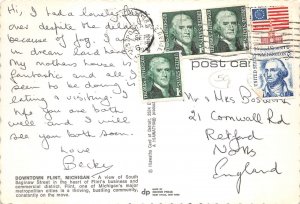 Hi, I had a lovely flight
over despite the delay
because of fog. I am
in dream land here.
My mothers house is
fantastic and all I
seem to be doing is
eating & visiting.
hope you are both
well and I will
see you both soon.
Love
Becky
DOWNTOWN FLINT, MICHIGAN — A view of South
Saginaw Street in the heart of Flint's business and
commercial district. Flint, one of Michigan's major
metropolitan cities is a thriving, bustling community,
constantly on the move.
post card
Mr & Mrs
21 Cornwall Rd
Retford
Notts
England
dp